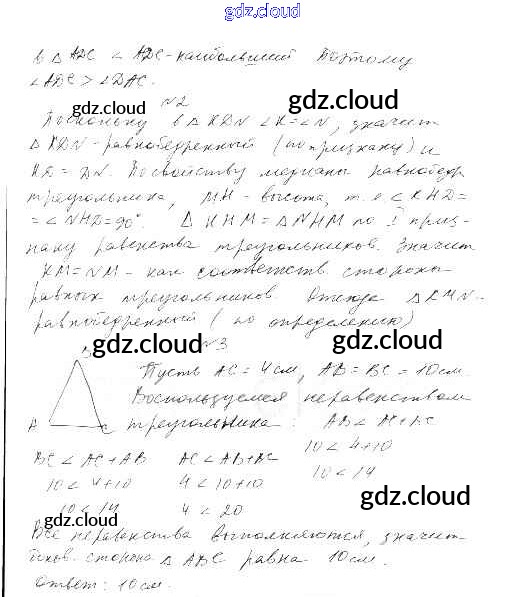 gdz.cloud
в △ ADC ∠ ADC - наибольший Поэтому
∠ADC > ∠DAC.
gdz.cloud
gdz.cloud
№2
Поскольку в △ KDN ∠K = ∠N, значит
△ KDN - равнобедренный (по признаку) и
KD = DN. По свойству медианы равнобедр
треугольника, MH - высота, т.е ∠KHD =
= ∠NHD = 90°. △ KHM = △ NHM по I приз-
наку равенства треугольников. Значит
KM = NM - как соответств. стороны
равных треугольников. Отсюда △ KMN -
равнобедренный (по определению)
gdz.cloud
gdz.cloud
№3
Пусть AC = 4 см, AB = BC = 10 см.
Воспользуемся неравенством
треугольника: AB < AC + BC
A
gdz.cloud
10 < 4 + 10
BC < AC + AB AC < AB + BC
10 < 14
10 < 4 + 10 4 < 10 + 10
gdz.cloud
gdz.cloud
10 < 14 4 < 20
Все неравенства выполняются, значит
боков. сторона △ ABC равна 10 см.
Ответ: 10 см.
gdz.cloud
gdz.cloud